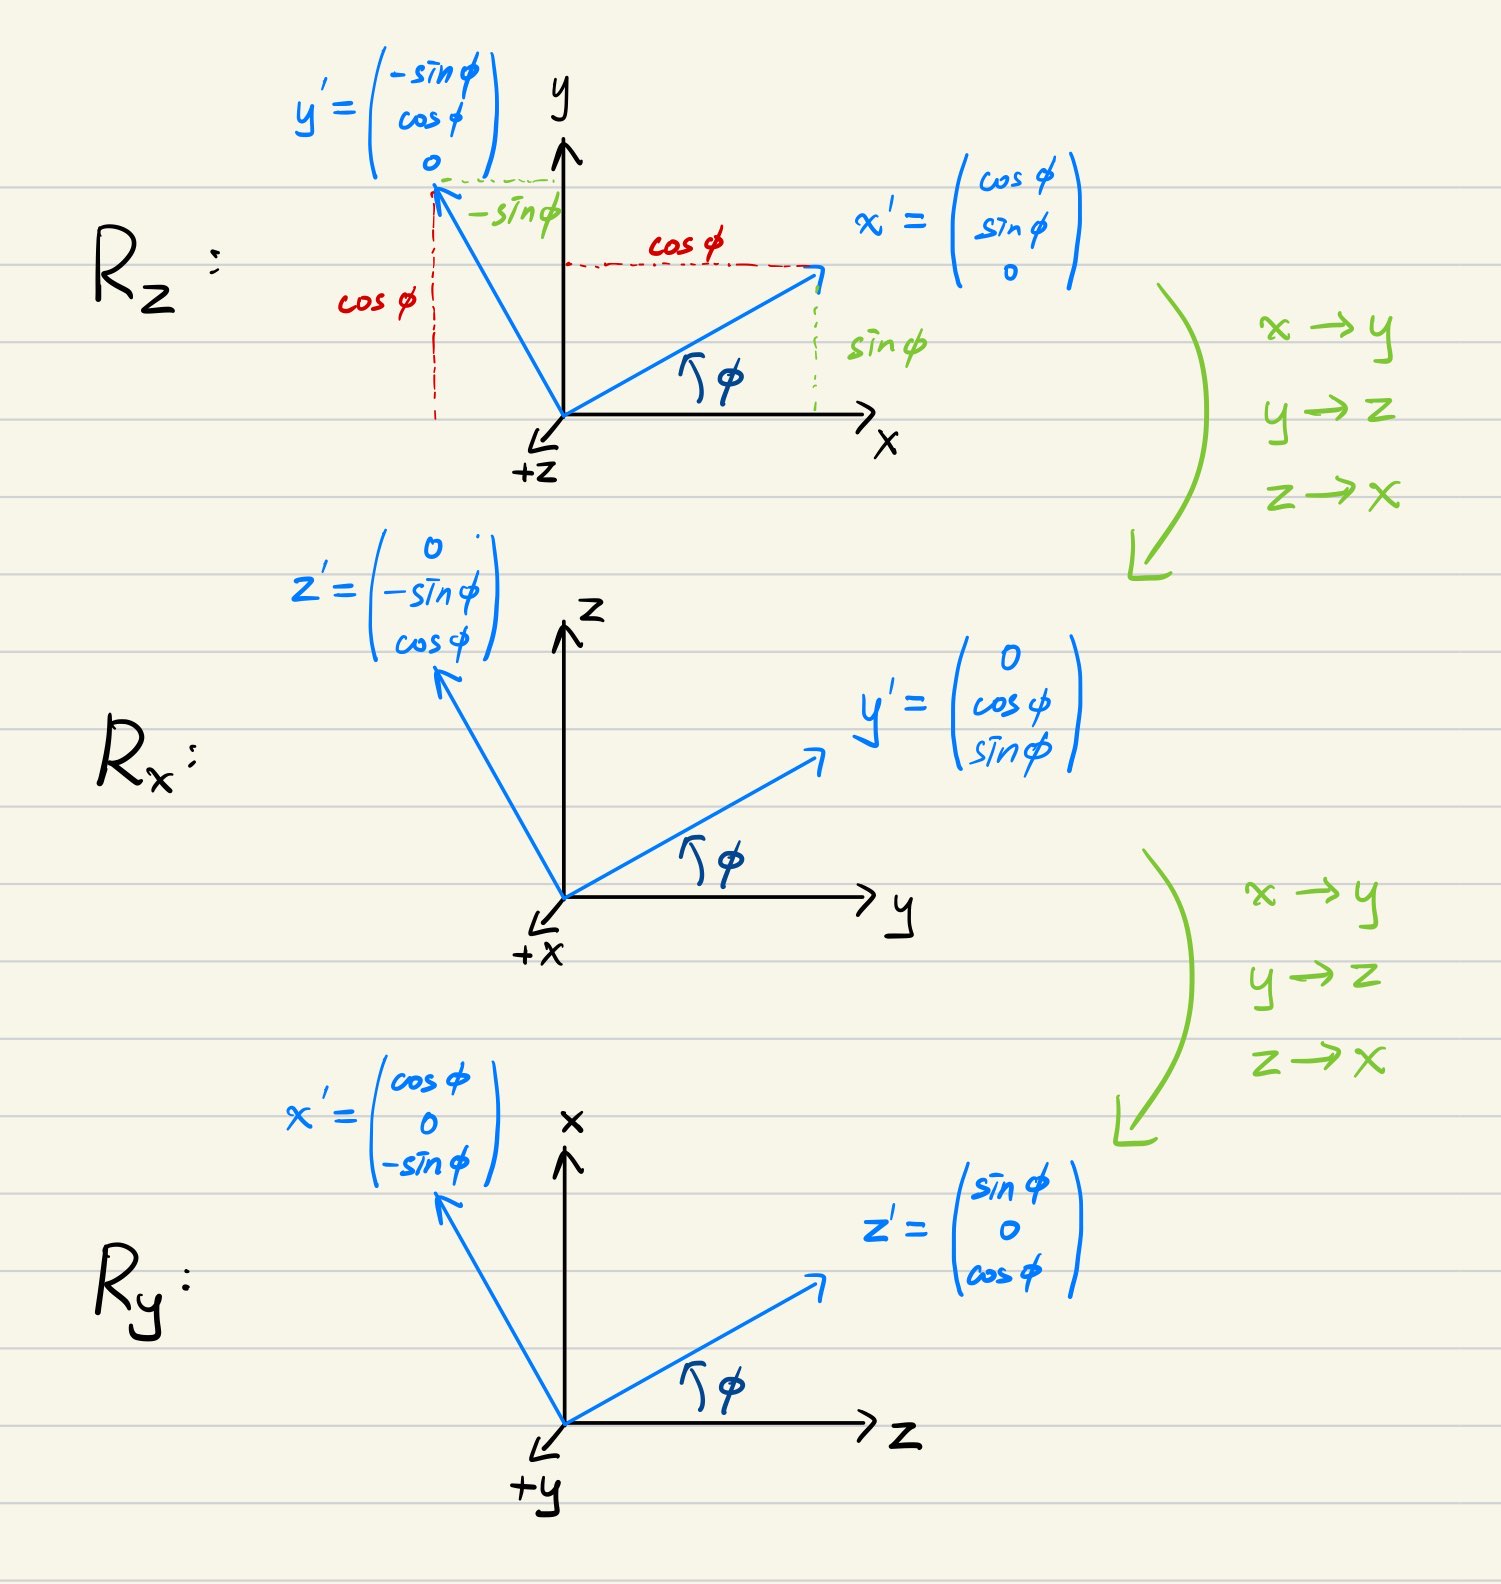 R_z :
y' = ( -sin ϕ
cos ϕ
0 )
y
-sin ϕ
cos ϕ
cos ϕ
x' = ( cos ϕ
sin ϕ
0 )
sin ϕ
ϕ
x
+z
x → y
y → z
z → x
R_x :
z' = ( 0
-sin ϕ
cos ϕ )
z
y' = ( 0
cos ϕ
sin ϕ )
ϕ
y
+x
x → y
y → z
z → x
R_y :
x' = ( cos ϕ
0
-sin ϕ )
x
z' = ( sin ϕ
0
cos ϕ )
ϕ
z
+y